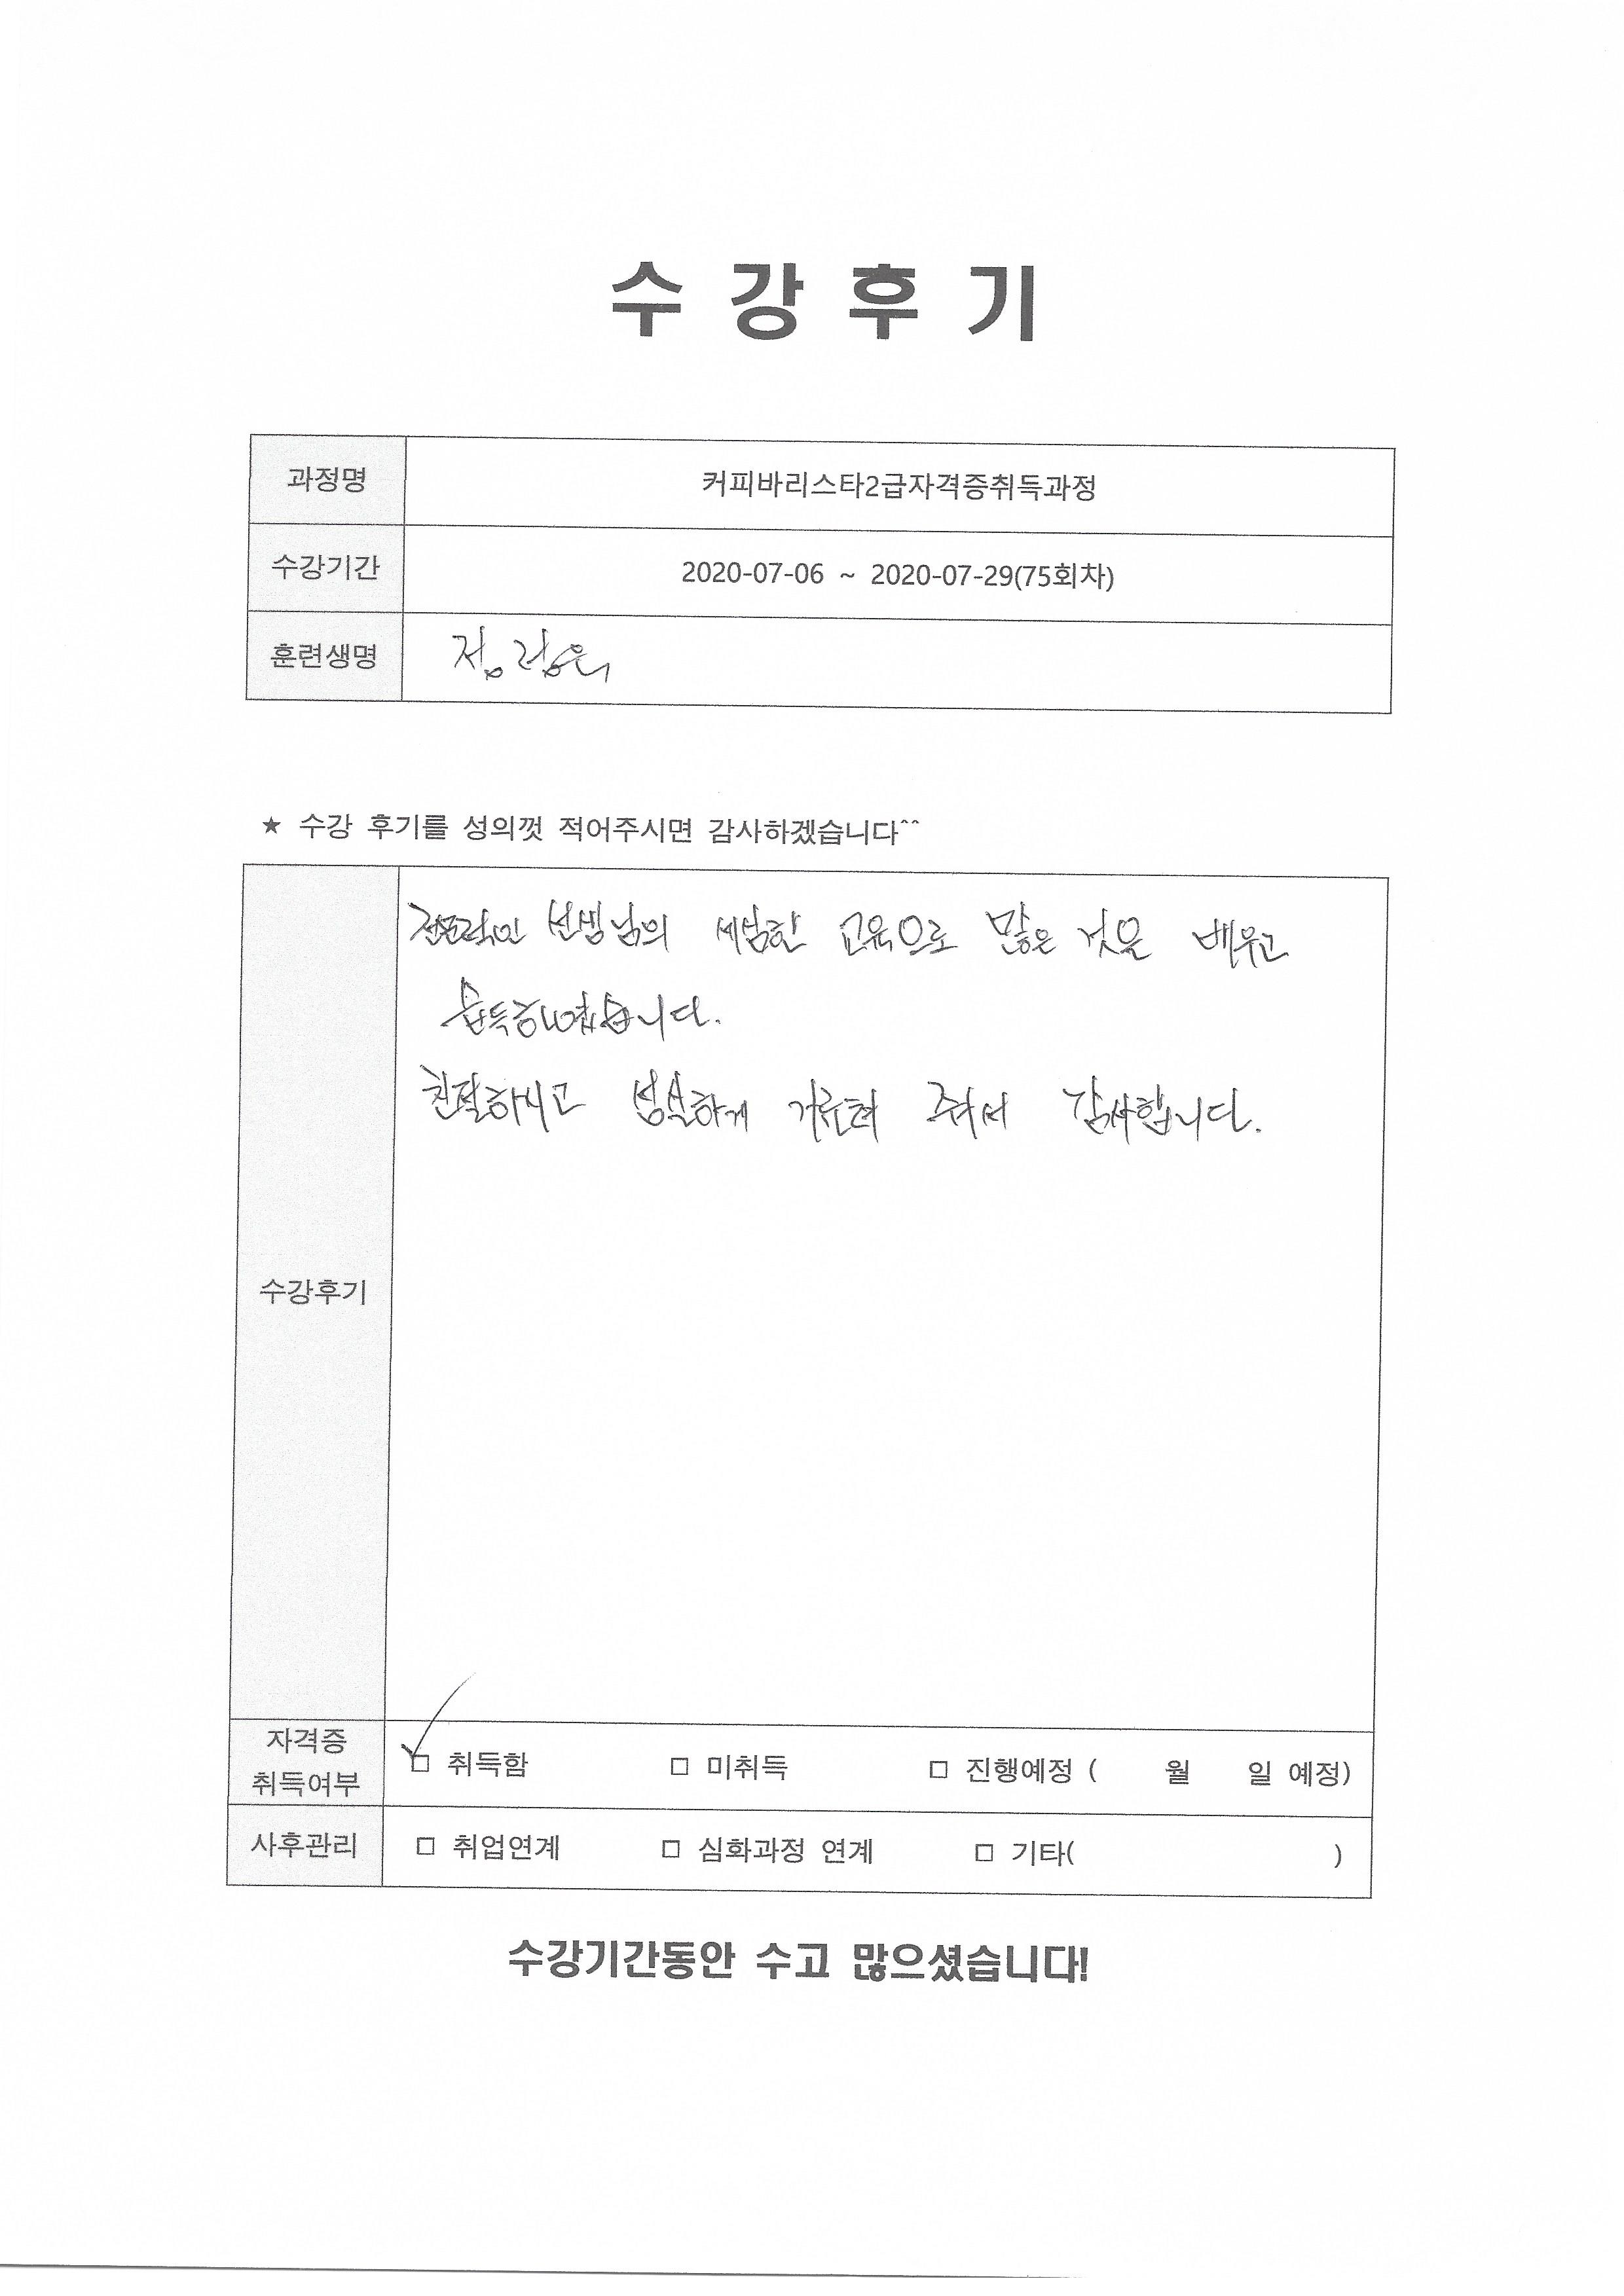 수 강 후 기
과정명 커피바리스타2급자격증취득과정
수강기간 2020-07-06 ~ 2020-07-29(75회차)
훈련생명
★ 수강 후기를 성의껏 적어주시면 감사하겠습니다^^
전문적인 선생님의 세심한 교육으로 많은 것을 배우고
습득하였습니다.
친절하시고 성실하게 가르쳐 줘서 감사합니다.
수강후기
자격증
취득여부 □ 취득함 □ 미취득 □ 진행예정 ( 월 일 예정)
사후관리 □ 취업연계 □ 심화과정 연계 □ 기타( )
수강기간동안 수고 많으셨습니다!